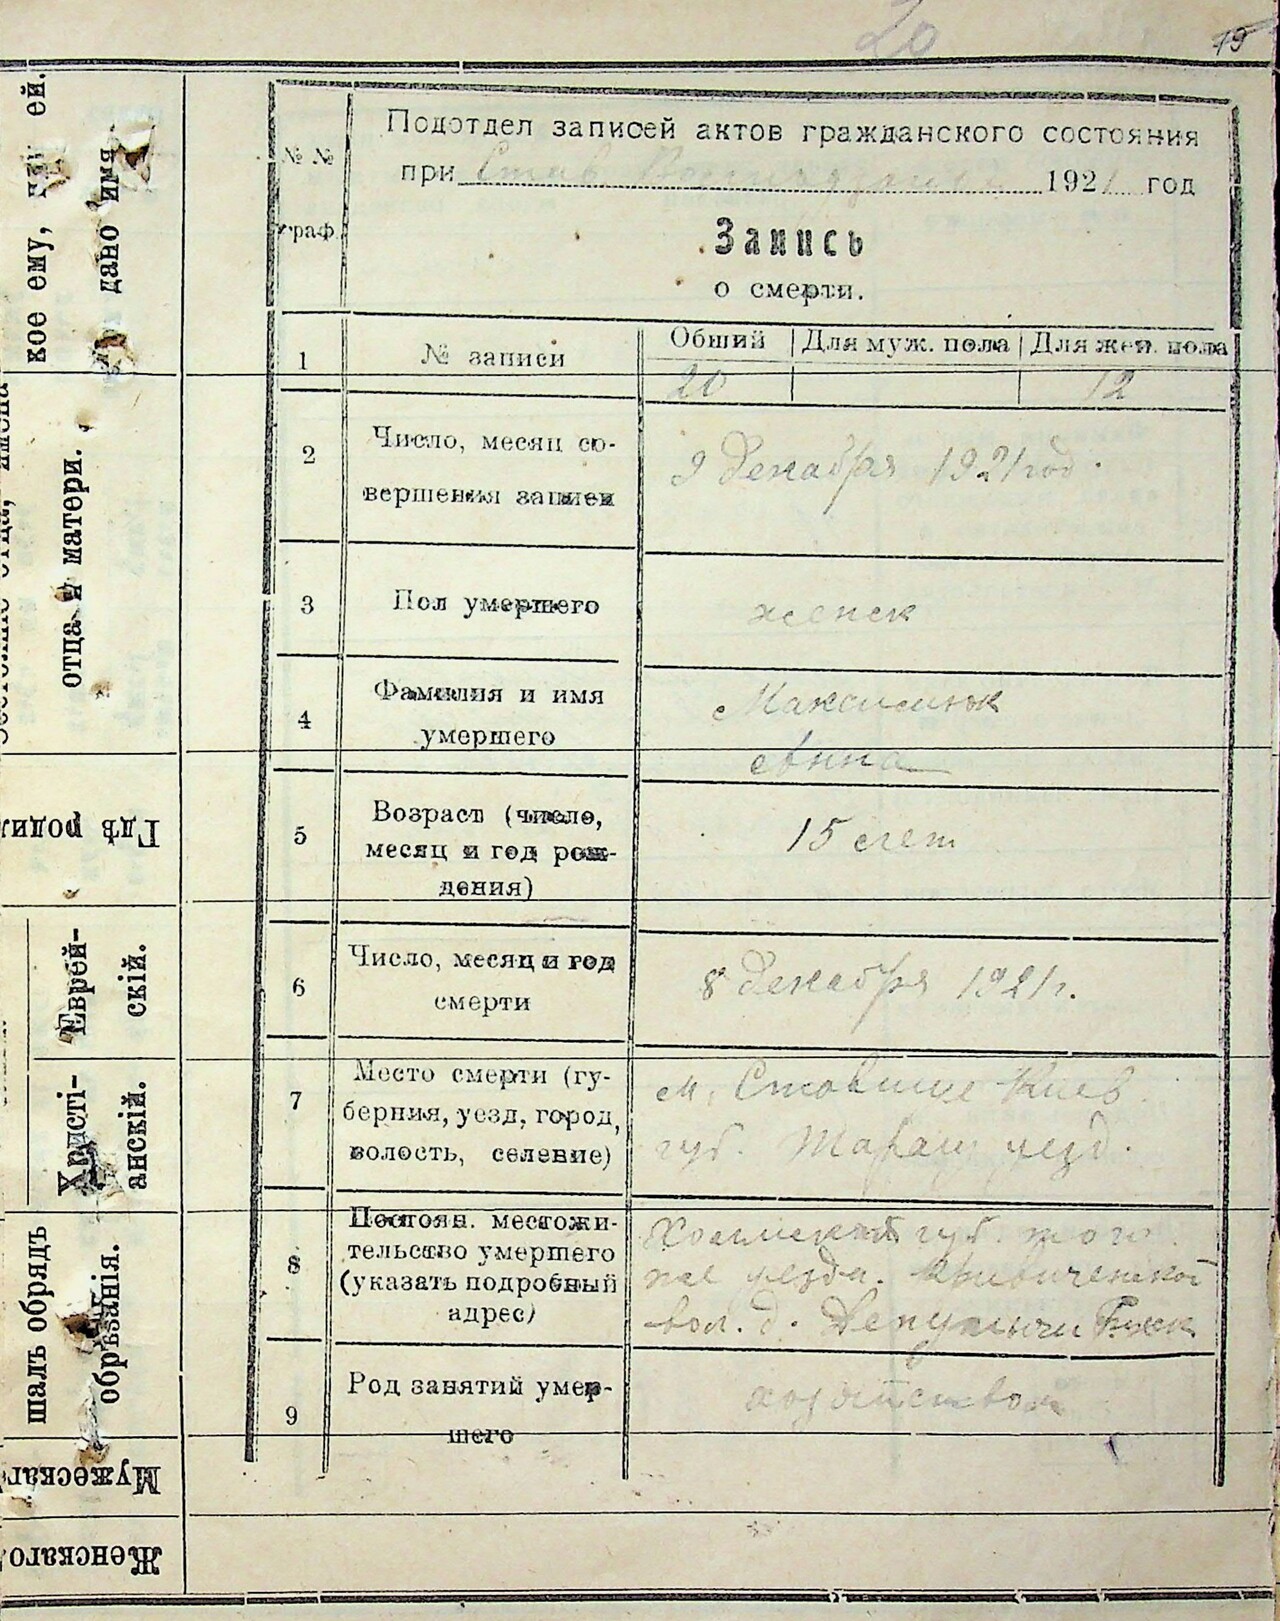 20
19
Подотдел записей актов гражданского состояния
при Став 1921 год
№ №
граф.
Запись
о смерти.
1
№ записи
Обший
Для муж. пола
Для жен. пола
20
12
2
Число, месяц со-
вершения записи
9 Декабря 1921 год.
3
Пол умершего
женск
4
Фамилия и имя
умершего
Максимюк
Анна
5
Возраст (число,
месяц и год рож-
дения)
15 лет
6
Число, месяц и год
смерти
8 Декабря 1921 г.
7
Место смерти (гу-
берния, уезд, город,
волость, селение)
м. Ставище Киев.
губ. Таращ уезд.
8
Постоян. местожи-
тельство умершего
(указать подробный
адрес)
Холмской губ. того
же уезда. Кривиченской
вол. д. Депултычи Руск
9
Род занятий умер-
шего
хозяйством
кое ему, или ей.
дано имя
отца, имена
отца и матери.
Гдѣ родил
Еврей-
скій.
Христі-
анскій.
шалъ обрядъ
обрѣзанія.
Мужескаго
Женскаго.